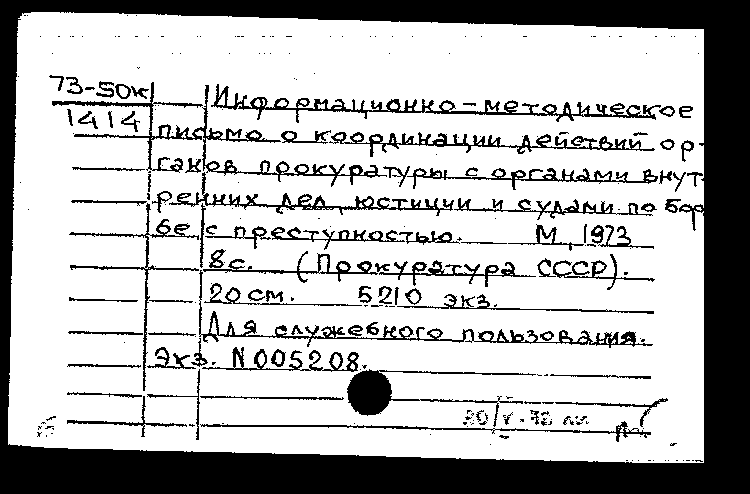 73-50к
1414
Информационно-методическое
письмо о координации действий ор-
ганов прокуратуры с органами внут-
ренних дел, юстиции и судами по бор
бе с преступностью. М, 1973
8с. (Прокуратура СССР).
20 см. 5210 экз.
Для служебного пользования.
Экз. N005208.